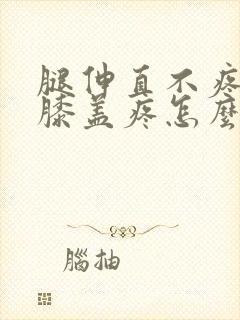 腿伸直不疼
膝盖疼怎麽
腦抽